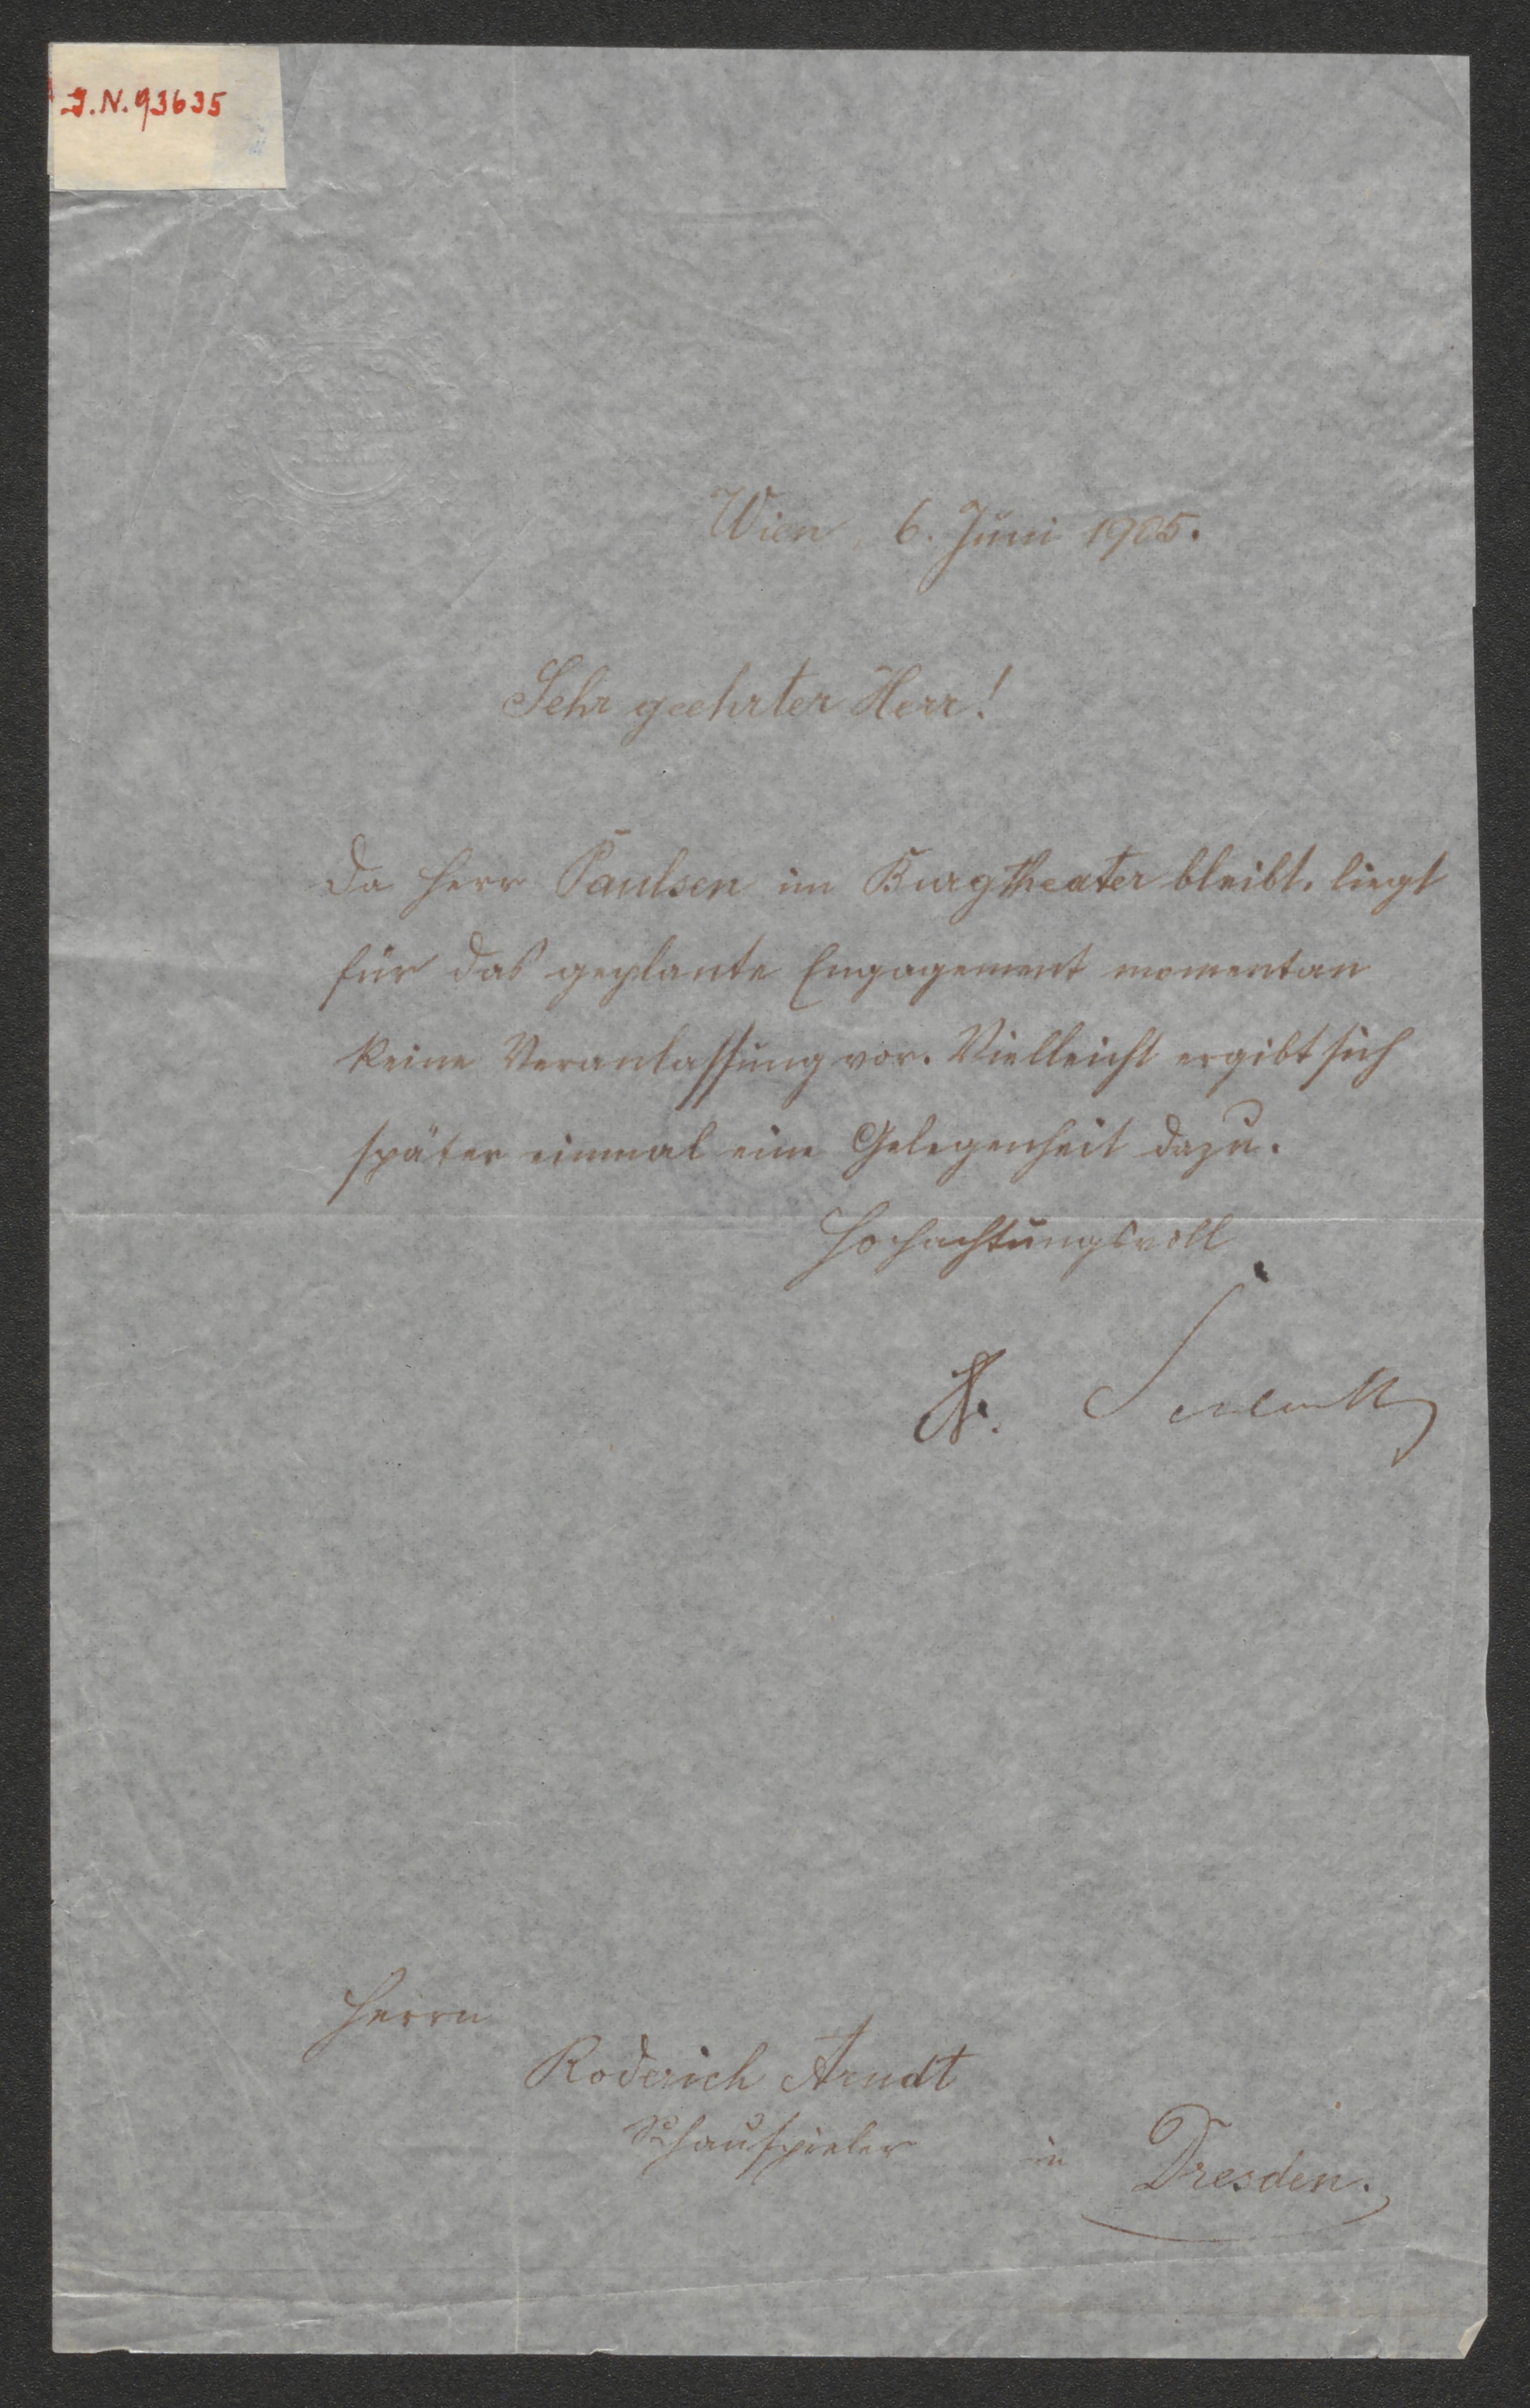 J.N. 93635
Wien 6. Juni 1905.
Sehr geehrter Herr!
Da Herr Paulsen im Burgtheater bleibt, liegt
für das geplante Engagement momentan
keine Veranlassung vor. Vielleicht ergibt sich
später einmal eine Gelegenheit dazu.
Hochachtungsvoll
Dr. Schlenther
Herrn
Roderich Arndt
Schauspieler in Dresden.